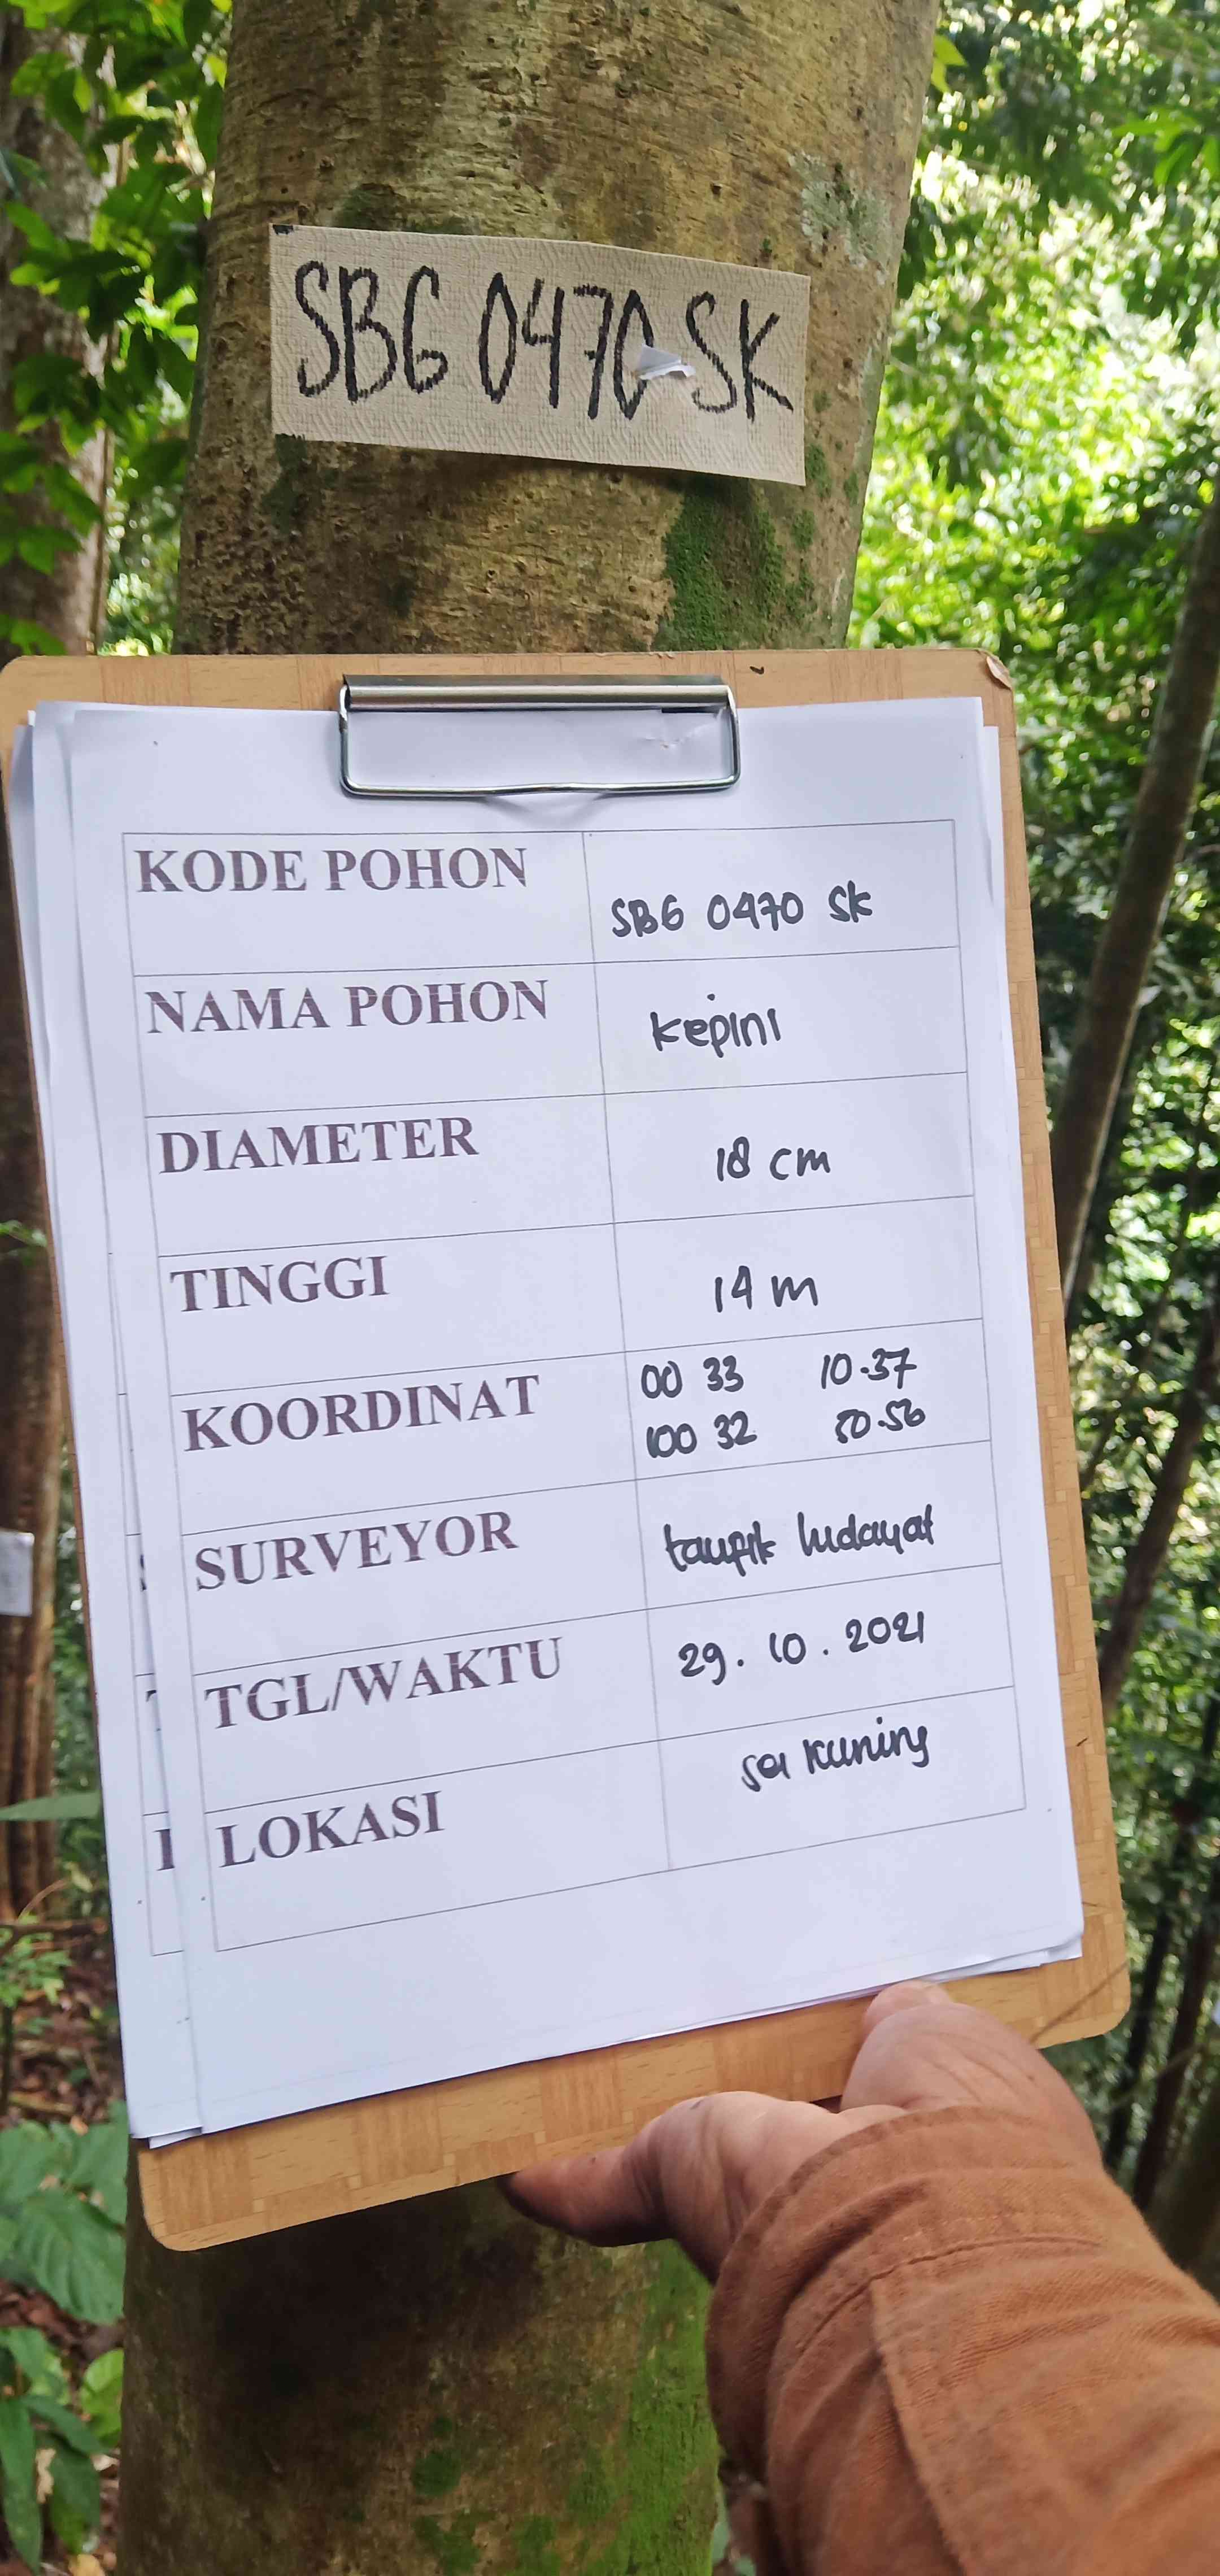 SBG 0470 SK
KODE POHON
SBG 0470 SK
NAMA POHON
kepini
DIAMETER
18 cm
TINGGI
14 m
KOORDINAT
00 33 10.37
100 32 50.56
SURVEYOR
taupik hidayat
TGL/WAKTU
29.10.2021
LOKASI
sei kuning